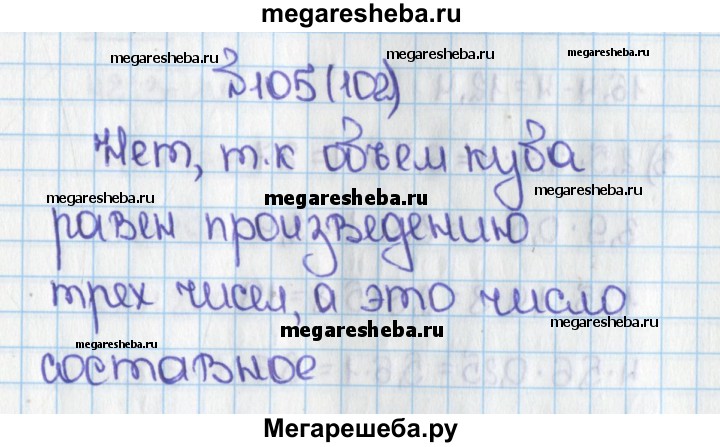 megaresheba.ru
megaresheba.ru
megaresheba.ru
№105(102)
megaresheba.ru
Нет, т.к объем куба
megaresheba.ru
megaresheba.ru
megaresheba.ru
равен произведению
трех чисел, а это число
megaresheba.ru
megaresheba.ru
составное
Мегарешеба.ру